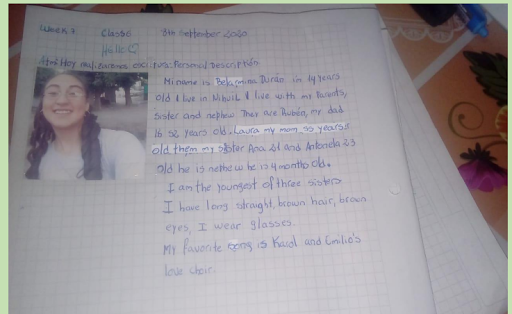 Week 7 Class 6 8th September 2020
Hello
Personal Description
Mi name is Belarmina Durán im 14 years
old I live in I live with my Parents,
sister and nephew They are Rubén, my dad
is 52 years old. Laura my mom 50 years
old them my sister Ana 21 and Antonela 23
old he is nethew he is 4 months old.
I am the youngest of three sisters
I have long straight, brown hair, brown
eyes, I wear glasses.
My favorite is Karol and Emilio's
love